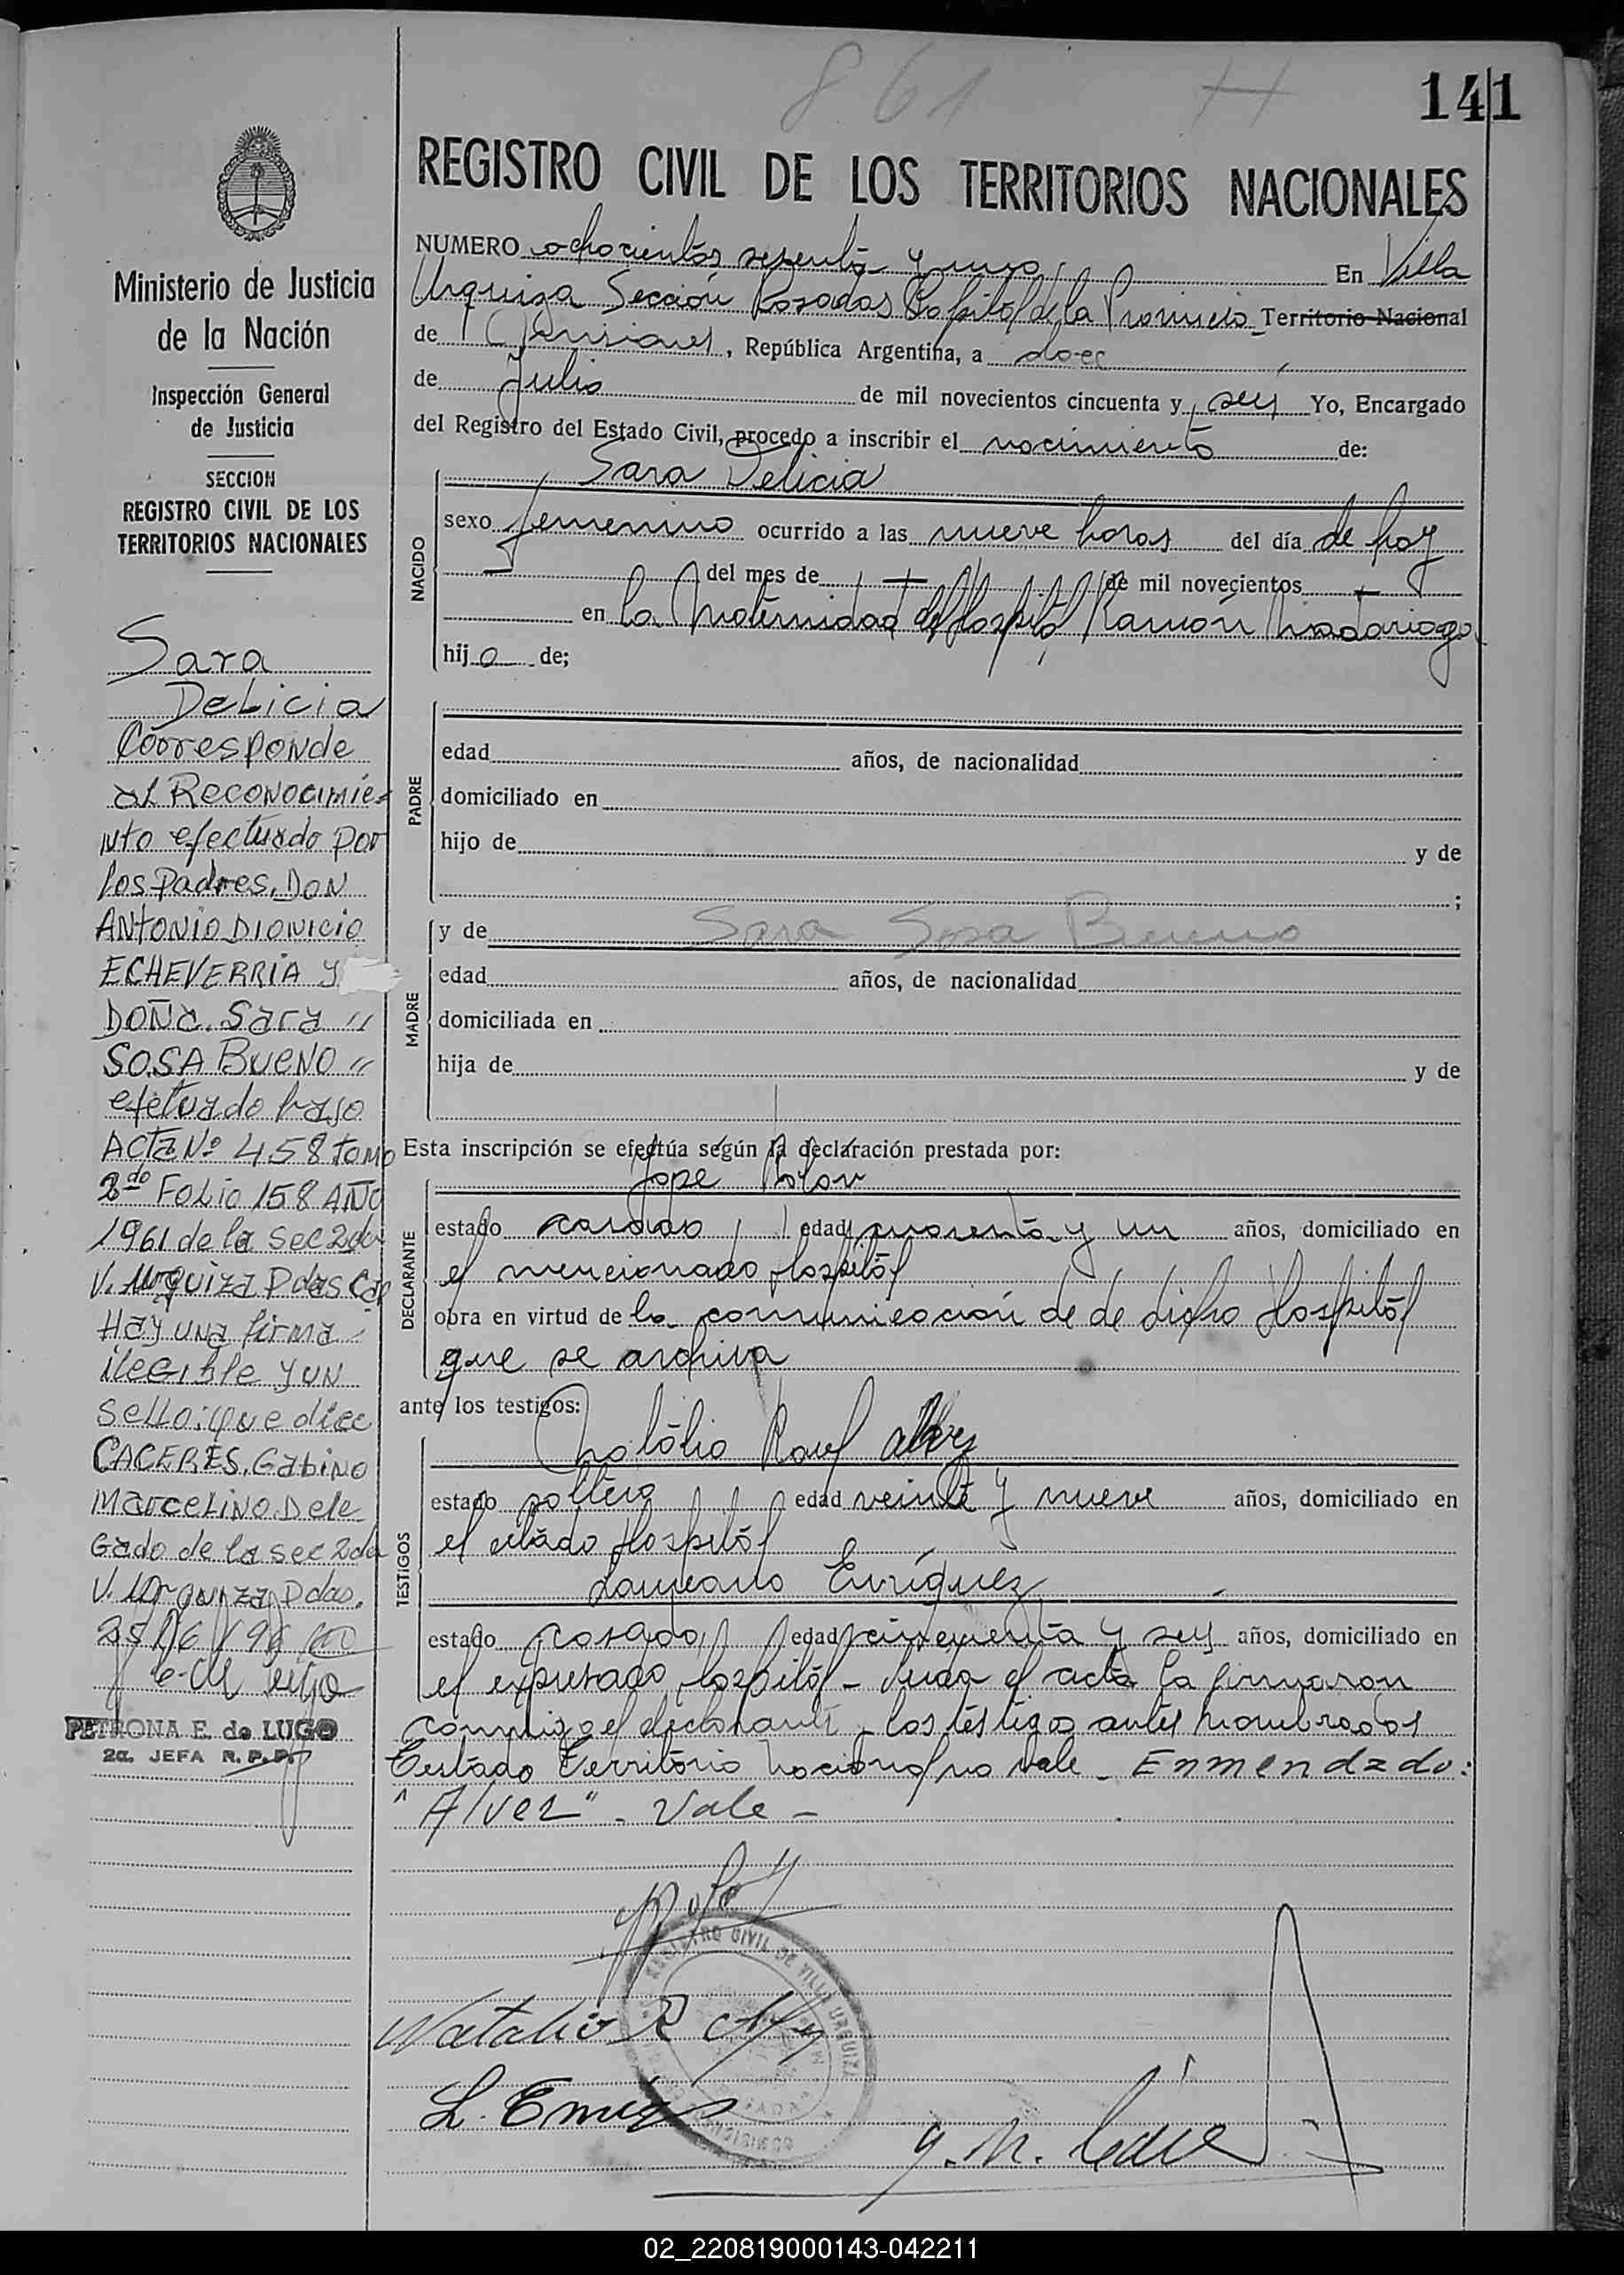 861
141
REGISTRO CIVIL DE LOS TERRITORIOS NACIONALES
NUMERO ochocientos sesenta y uno En Villa
Urquiza Sección Posadas Capital de la Provincia Territorio Nacional
de Misiones, República Argentina, a doce
de Julio de mil novecientos cincuenta y seis Yo, Encargado
del Registro del Estado Civil, procedo a inscribir el nacimiento de:
NACIDO
Sara Delicia
sexo femenino ocurrido a las nueve horas del día de hoy
del mes de de mil novecientos
en la Maternidad del Hospital Ramón Madariaga
hija de;
PADRE
edad años, de nacionalidad
domiciliado en
hijo de y de
;
MADRE
y de Sara Sosa Bueno
edad años, de nacionalidad
domiciliada en
hija de y de
Esta inscripción se efectúa según la declaración prestada por:
DECLARANTE
Jope
estado casado edad cuarenta y un años, domiciliado en
el mencionado Hospital
obra en virtud de la comunicación de de dicho Hospital
que se archiva
ante los testigos:
TESTIGOS
Natalio Raul Alvez
estado soltero edad veinte y nueve años, domiciliado en
el citado Hospital
Laureano Enríquez
estado casado edad cincuenta y seis años, domiciliado en
el expresado Hospital - Leída el acta la firmaron
conmigo el declarante y los testigos antes nombrados
Testado Territorio Nacional no vale - Enmendado:
"Alvez" - Vale -
Natalio R
REGISTRO CIVIL DE VILLA URQUIZA
L. Enriq
Ministerio de Justicia
de la Nación
Inspección General
de Justicia
SECCION
REGISTRO CIVIL DE LOS
TERRITORIOS NACIONALES
Sara
Delicia
Corresponde
al Reconocimie-
nto efectuado por
los Padres, DON
ANTONIO DIONICIO
ECHEVERRIA y
DOÑA. Sara "
SOSA BUENO "
efetuado bajo
Acta Nº 458 tomo
2do FOLIO 158 AÑO
1961 de la sec 2da
V. Urquiza Pdas Cap
Hay una firma
ilegible y un
sello: que dice
CACERES, Gabino
Marcelino Dele
gado de la sec 2da
V. Urquiza Pdas.
PETRONA E. de LUGO
2a. JEFA R. P. P.
02_220819000143-042211